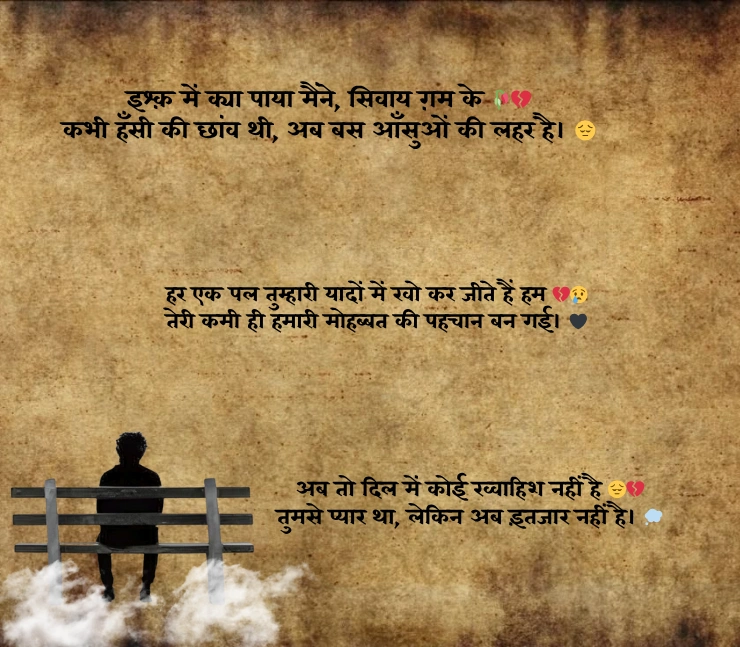 इश्क़ में क्या पाया मैंने, सिवाय ग़म के 🥀💔
कभी हँसी की छांव थी, अब बस आँसुओं की लहर है। 😔
हर एक पल तुम्हारी यादों में खो कर जीते हैं हम 💔😢
तेरी कमी ही हमारी मोहब्बत की पहचान बन गई। 🖤
अब तो दिल में कोई ख्वाहिश नहीं है 😔💔
तुमसे प्यार था, लेकिन अब इंतजार नहीं है। 💭